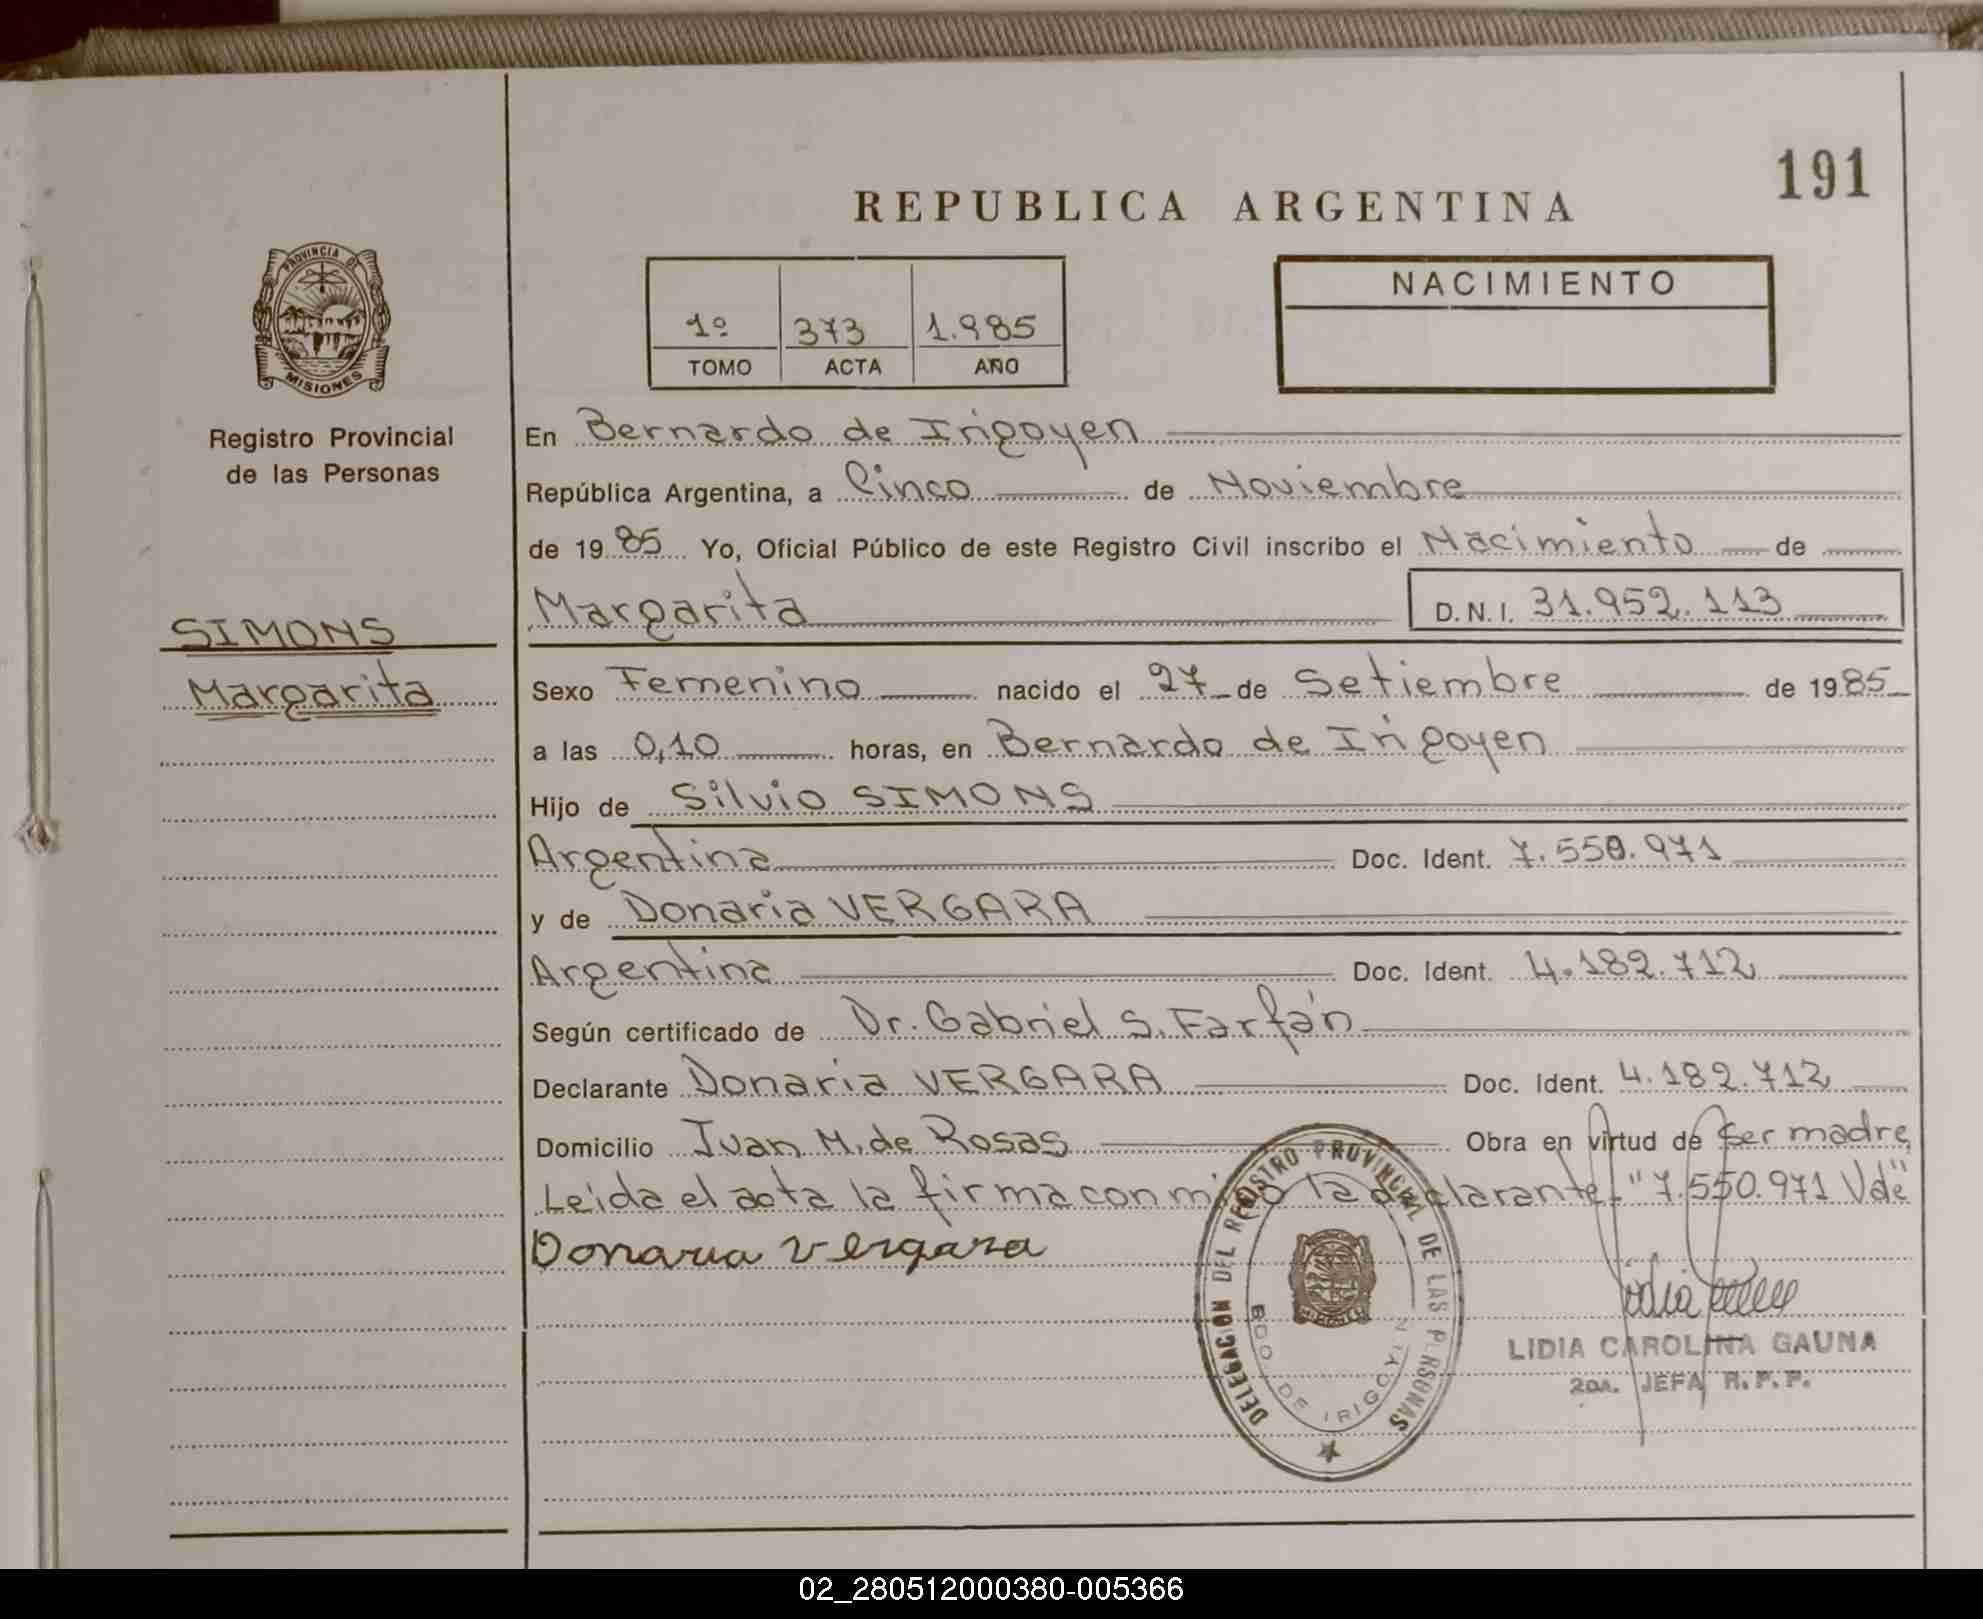 191
REPUBLICA ARGENTINA
PROVINCIA DE
MISIONES
Registro Provincial
de las Personas
SIMONS
Margarita
1º 373 1.985
TOMO ACTA AÑO
NACIMIENTO
En Bernardo de Irigoyen
República Argentina, a Cinco de Noviembre
de 19 85 Yo, Oficial Público de este Registro Civil inscribo el Nacimiento de
Margarita D.N.I. 31.952.113
Sexo Femenino nacido el 27 de Setiembre de 19 85
a las 0,10 horas, en Bernardo de Irigoyen
Hijo de Silvio SIMONS
Argentina Doc. Ident. 7.550.971
y de Donaria VERGARA
Argentina Doc. Ident. 4.182.712
Según certificado de Dr. Gabriel S. Farfán
Declarante Donaria VERGARA Doc. Ident. 4.182.712
Domicilio Juan M. de Rosas Obra en virtud de ser madre,
Leida el acta la firma conmigo la declarante. "7.550.971 Vale"
Donaria vergara
DELEGACION DEL REGISTRO PROVINCIAL DE LAS PERSONAS
BDO DE IRIGOYEN
LIDIA CAROLINA GAUNA
2da. JEFA R.P.P.
02_280512000380-005366